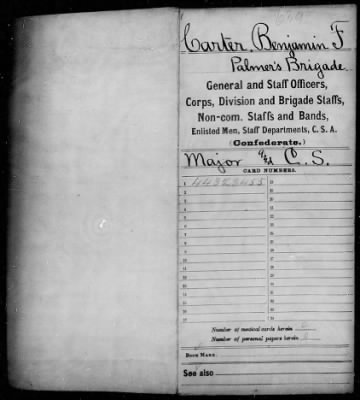 Carter, Benjamin F
Palmer's Brigade.
General and Staff Officers,
Corps, Division and Brigade Staffs,
Non-com. Staffs and Bands,
Enlisted Men, Staff Departments, C. S. A.
(Confederate.)
Major & C. S.
CARD NUMBERS.
1 44323455 19
2 20
3 21
4 22
5 23
6 24
7 25
8 26
9 27
10 28
11 29
12 30
13 31
14 32
15 33
16 34
17 35
18 36
Number of medical cards herein
Number of personal papers herein
BOOK MARK:
See also